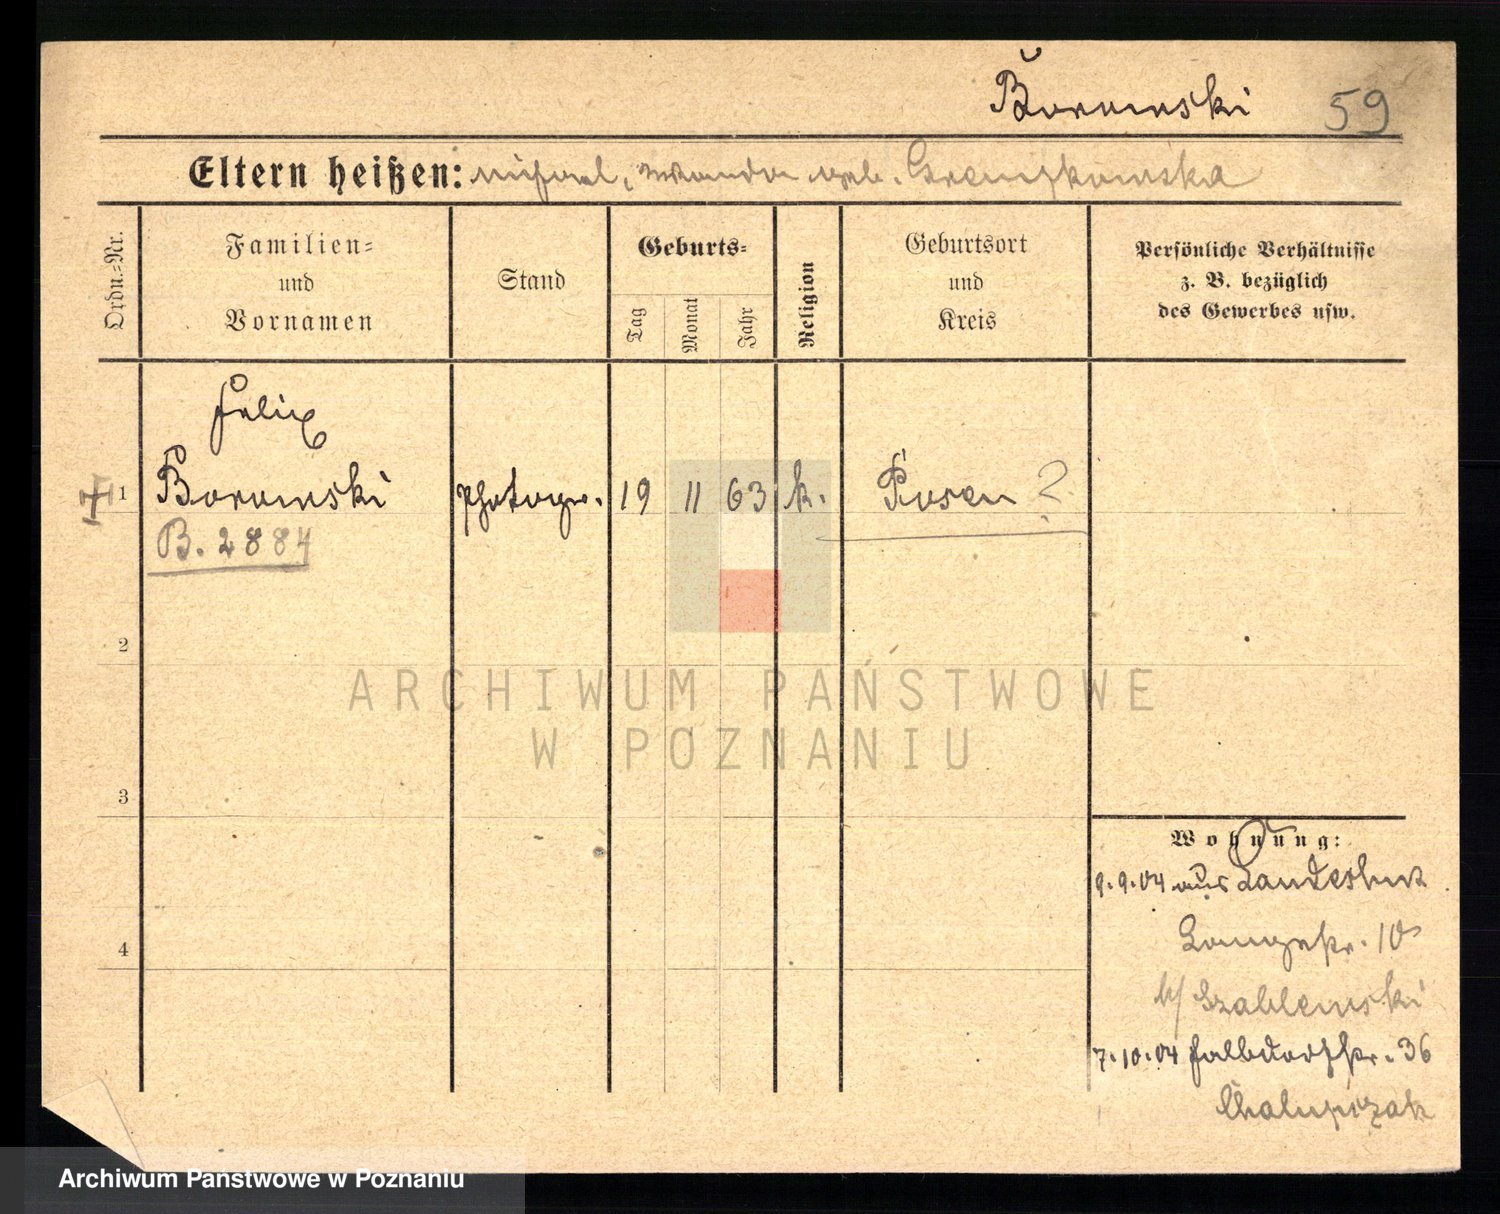 Borowski 59
Eltern heißen: Michael, Wanda geb.
Ordn.-Nr.
Familien-
und
Vornamen
Stand
Geburts-
Tag
Monat
Jahr
Religion
Geburtsort
und
Kreis
Persönliche Verhältnisse
z. B. bezüglich
des Gewerbes usw.
Felix
1 Borowski Photogr. 19 11 63 k. Posen ?
B. 2884
2
ARCHIWUM PAŃSTWOWE
W POZNANIU
3
Wohnung:
9.9.04 aus Landeshut
4
Langestr. 10
b/ Szablewski
7.10.04 Halbdorfstr. 36
Chalupczak
Archiwum Państwowe w Poznaniu